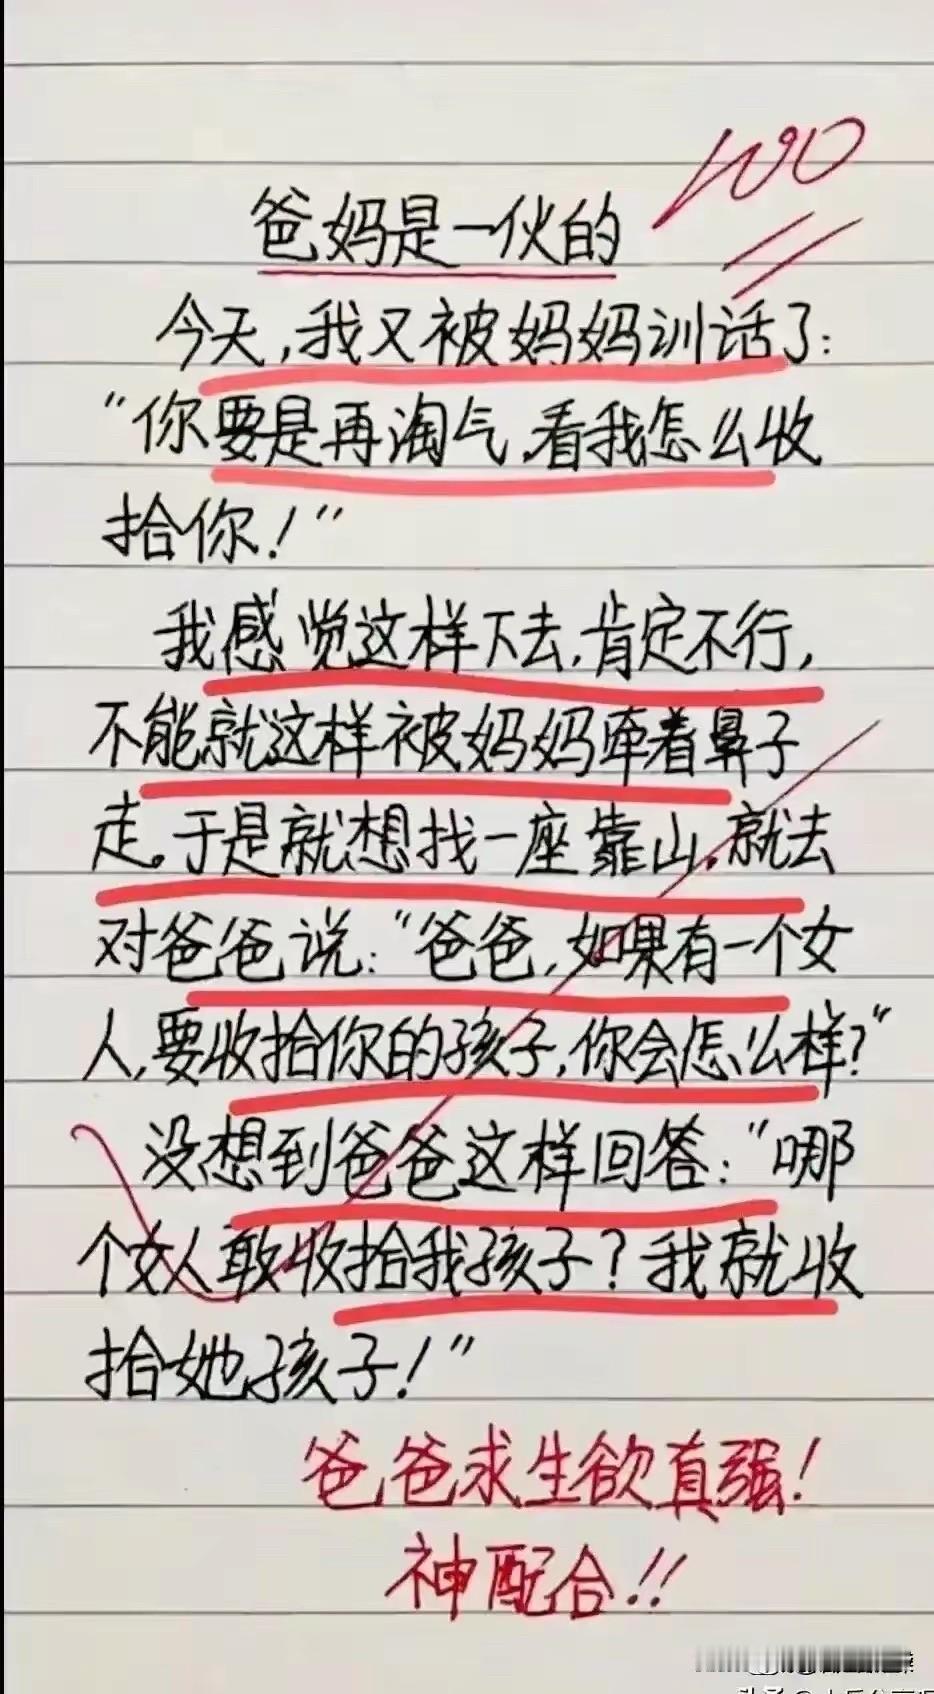 100
爸妈是一伙的
今天,我又被妈妈训话了:
“你要是再淘气,看我怎么收
拾你!”
我感觉这样下去,肯定不行,
不能就这样被妈妈牵着鼻子
走。于是就想找一座靠山,就去
对爸爸说:“爸爸,如果有一个女
人,要收拾你的孩子,你会怎么样?”
没想到爸爸这样回答:“哪
个女人敢收拾我孩子?我就收
拾她孩子!”
爸爸求生欲真强!
神配合!!